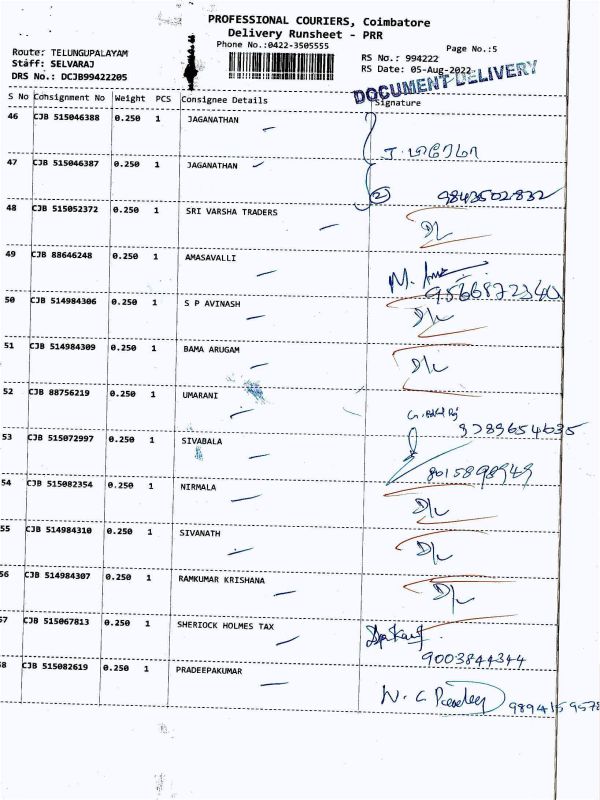 PROFESSIONAL COURIERS, Coimbatore
Delivery Runsheet - PRR
Phone No.:0422-3505555
Page No.:5
Route: TELUNGUPALAYAM
Staff: SELVARAJ
DRS No.: DCJB99422205
RS No.: 994222
RS Date: 05-Aug-2022
DOCUMENT DELIVERY
S No Consignment No Weight PCS Consignee Details Signature
46 CJB 515046388 0.250 1 JAGANATHAN
47 CJB 515046387 0.250 1 JAGANATHAN
2 9843502832
48 CJB 515052372 0.250 1 SRI VARSHA TRADERS D/L
49 CJB 88646248 0.250 1 AMASAVALLI
9566872340
50 CJB 514984306 0.250 1 S P AVINASH D/L
51 CJB 514984309 0.250 1 BAMA ARUGAM D/L
52 CJB 88756219 0.250 1 UMARANI
9789654635
53 CJB 515072997 0.250 1 SIVABALA
8015898949
54 CJB 515082354 0.250 1 NIRMALA D/L
55 CJB 514984310 0.250 1 SIVANATH D/L
56 CJB 514984307 0.250 1 RAMKUMAR KRISHANA D/L
57 CJB 515067813 0.250 1 SHERIOCK HOLMES TAX
9003844344
58 CJB 515082619 0.250 1 PRADEEPAKUMAR
9894159578